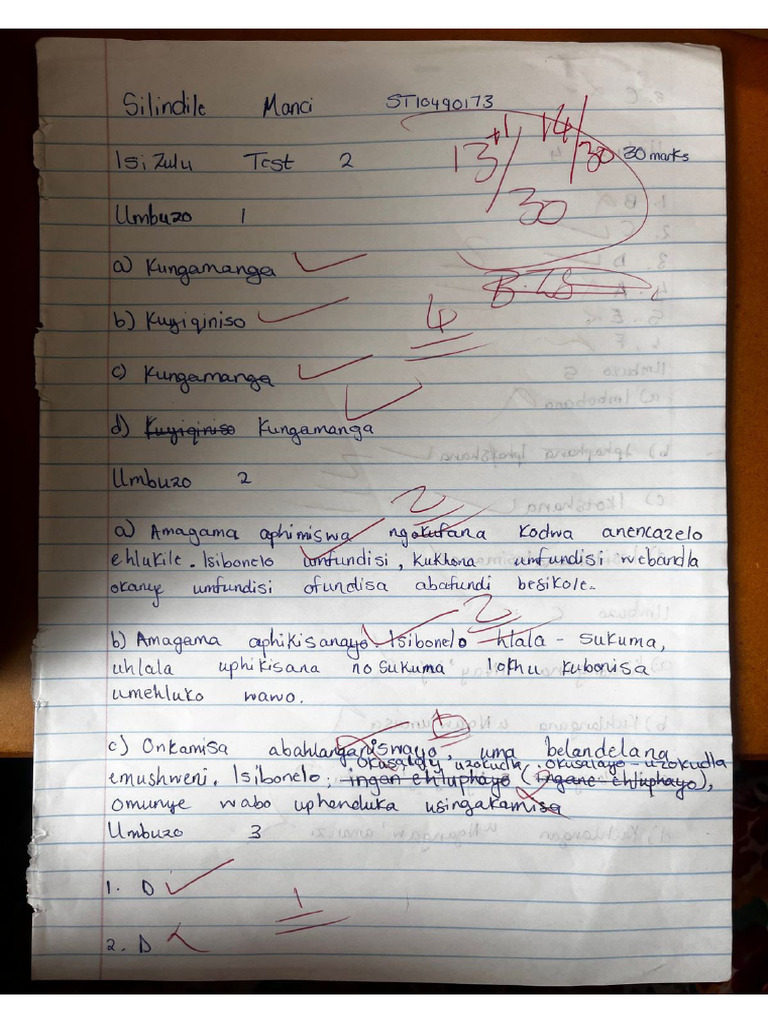 Silindile Manci ST10490173
13+1/30 14/30
IsiZulu Test 2 30 marks
Umbuzo 1
a) Kungamanga
b) Kuyiqiniso
4
c) Kungamanga
d) Kuyiqiniso Kungamanga
Umbuzo 2
2
a) Amagama aphimiswa ngokufana kodwa anencazelo
ehlukile. Isibonelo umfundisi, kukhona umfundisi webandla
okanye umfundisi ofundisa abafundi besikole.
2
b) Amagama aphikisanayo. Isibonelo hlala - sukuma,
uhlala uphikisana nosukuma lokhu kubonisa
umehluko wawo.
c) Onkamisa abahlanganiswayo, uma belandelana
uzokudla okusalayo - uzokudla
emushweni. Isibonelo; ingan ehluphayo (ingane ehluphayo),
omunye wabo uphenduka usingakamisa
Umbuzo 3
1. D
1
2. D